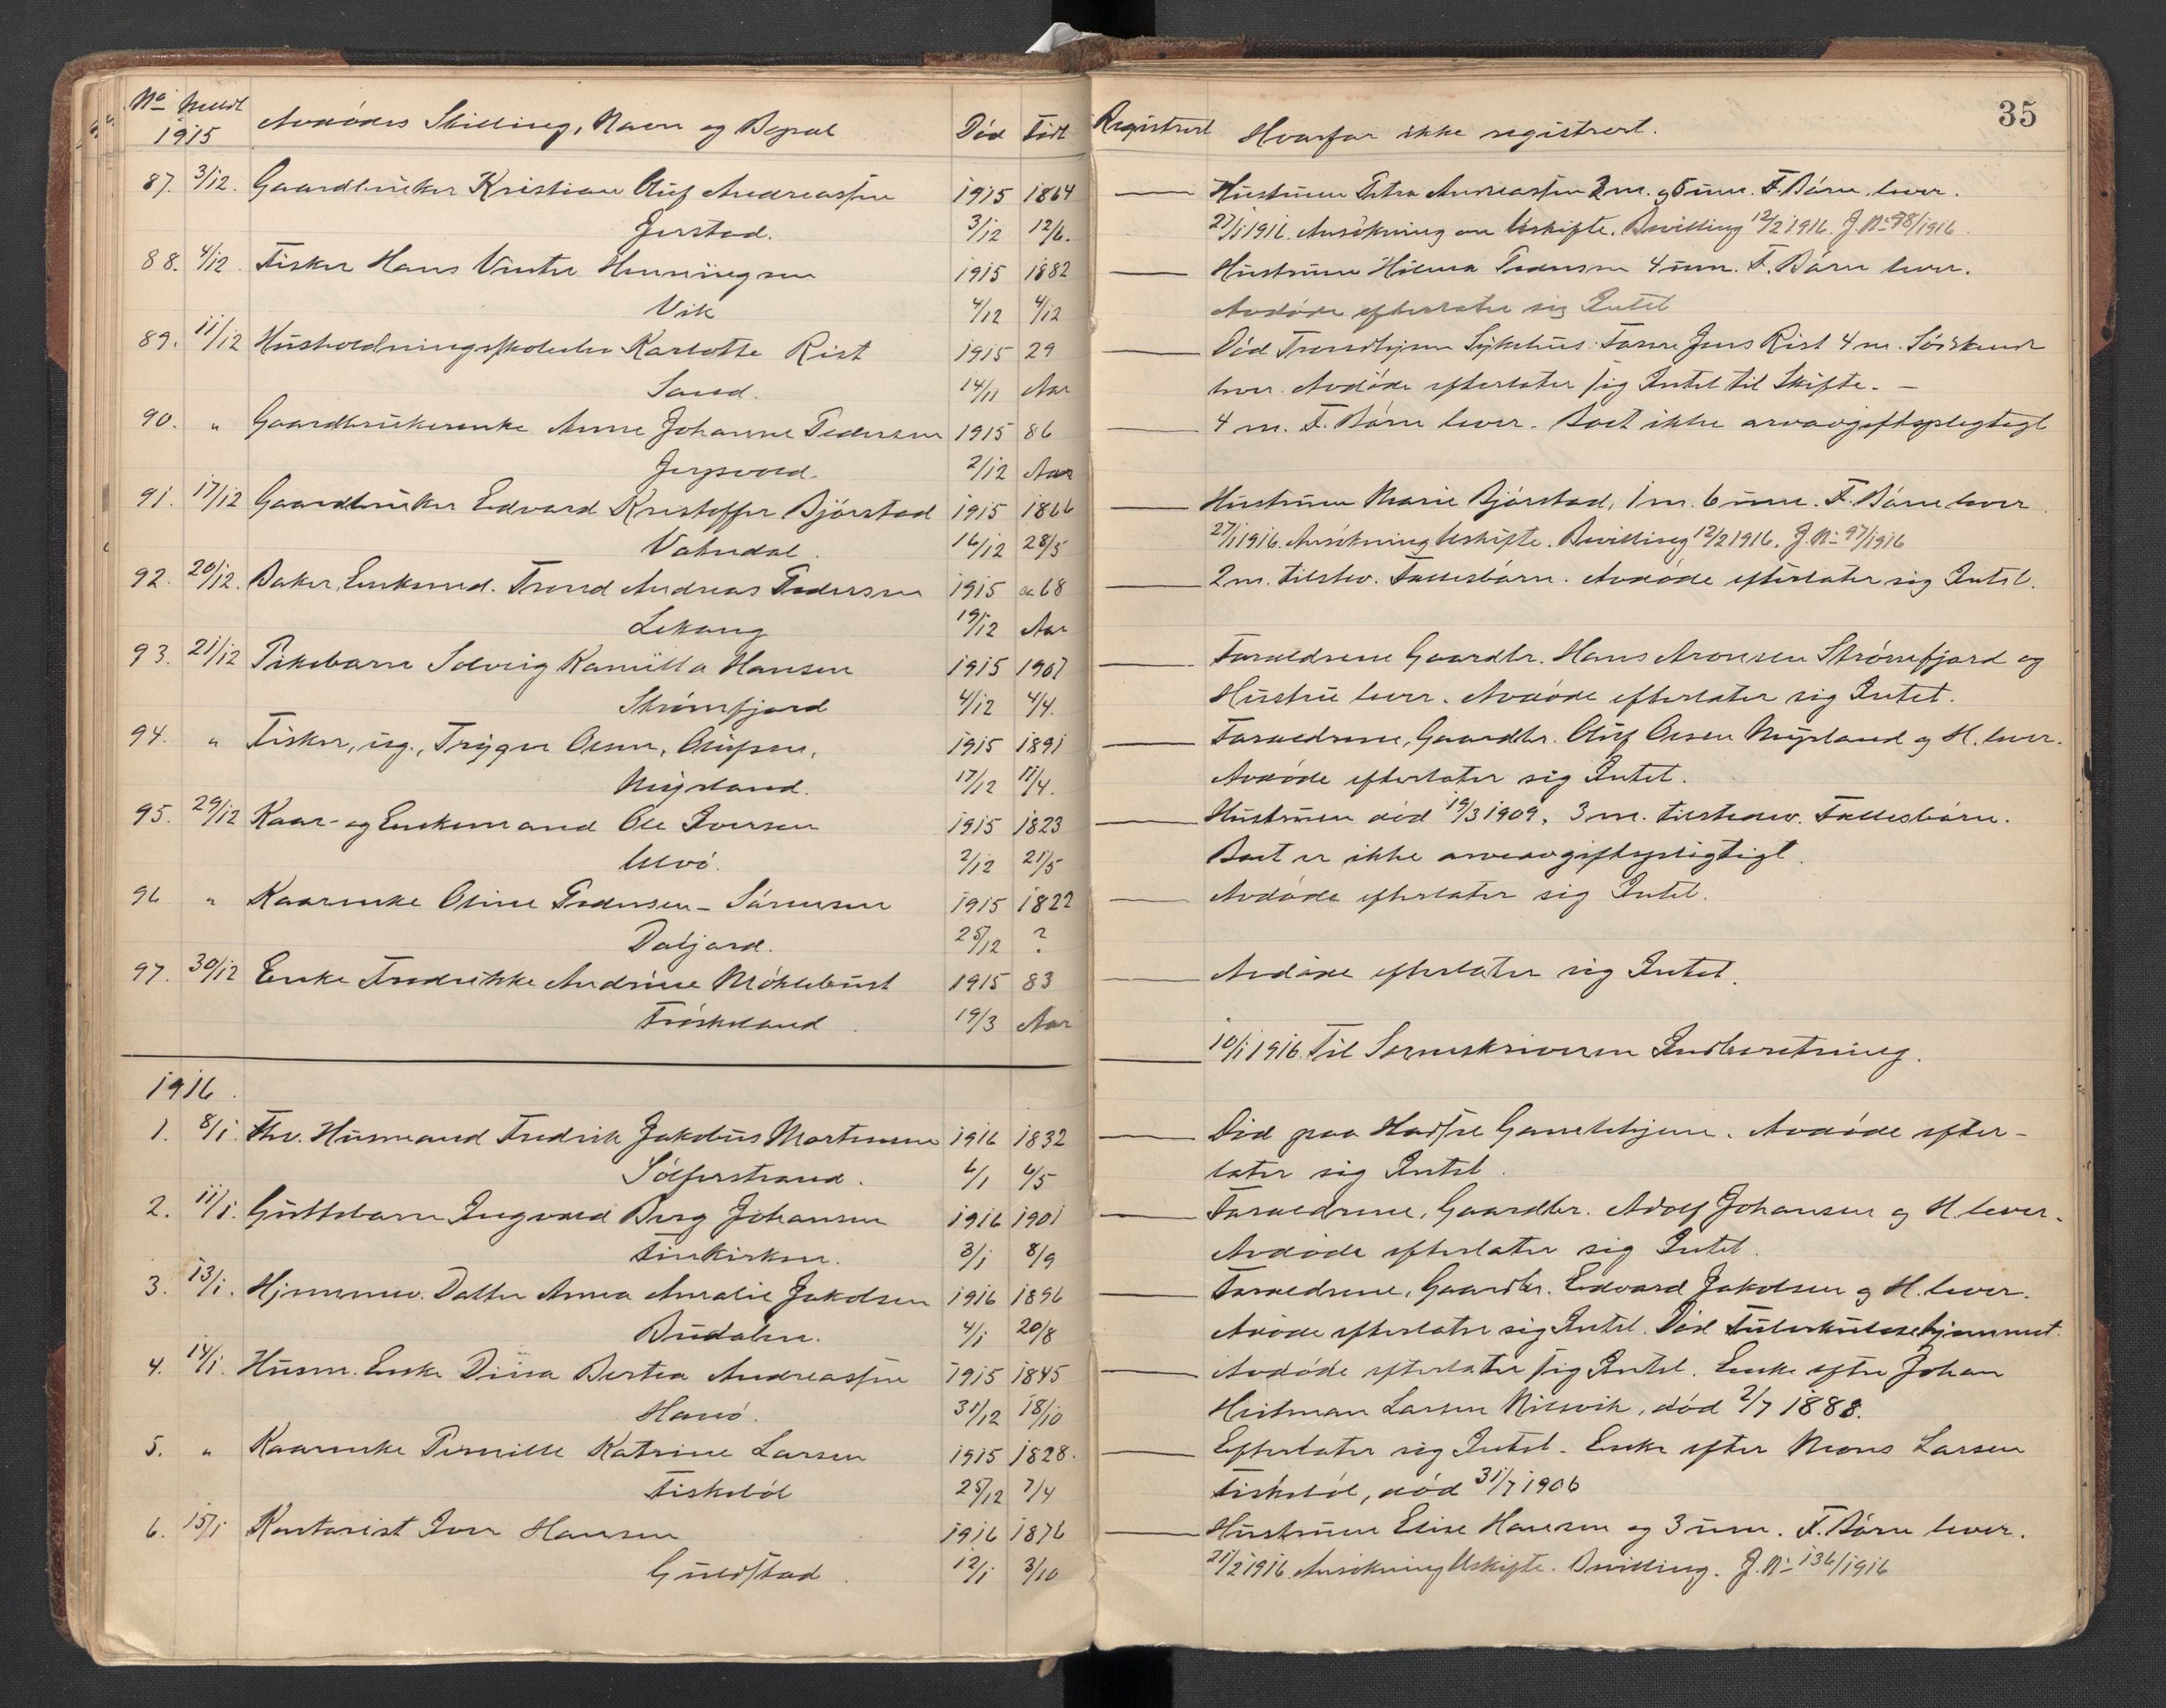 35
No Meldt Avdødes Stilling, Navn og Bopæl Død Født Registrert Hvorfor ikke registrert.
1915
87. 3/12. Gaardbruker Kristian Oluf Andreassen 1915 1864 — Hustruen Petra Andreassen 3 m. og 5 um. F. Børn lever.
Jerstad. 3/12 12/6. 27/1 1916. Ansökning om Uskifte. Bevilling 12/2 1916. J. No 98/1916.
88. 4/12. Fisker Hans Vinter Henningsen 1915 1882 — Hustruen Hilma Pedersen 4 um. F. Børn lever.
Vik 4/12 4/12 Avdøde efterlater sig Intet
89. 11/12 Husholdningsskolelev Karlotte Rist 1915 29 — Død Trondhjem Sykehus. Farre Jens Rist 4 m. Söskende
Sand. 14/11 Aar lever. Avdøde efterlater sig Intet til Skifte. —
90. " Gaardbrukerenke Anne Johanne Pedersen 1915 86 — 4 m. F. Børn lever. Boet ikke arveavgiftspligtigt
2/12 Aar
91. 17/12 Gaardbruker Edvard Kristoffer Bjørstad 1915 1866 — Hustruen Marie Bjørstad, 1 m. 6 um. F. Børn lever.
Vatndal. 16/12 28/5 27/1 1916. Ansökning Uskifte. Bevilling 12/2 1916. J. No 97/1916
92. 20/12. Baker, Enkemd. Trond Andreas Pedersen 1915 ca 68 — 2 m. tilstev. Fællesbørn. Avdøde efterlater sig Intet.
Lekang 19/12 Aar
93. 21/12 Pikebarn Solveig Kamilla Hansen 1915 1907 — Forældrene Gaardbr. Hans Aronsen Strømfjord og
Strømfjord 4/12 4/4. Hustru lever. Avdøde efterlater sig Intet.
94. " Fisker, ug., Trygve Olsen, Olufsen, 1915 1891 — Forældrene, Gaardbr. Oluf Olsen Nygland og H. lever.
17/12 11/4. Avdøde efterlater sig Intet.
95. 29/12 Kaar- og Enkemand Ole Iversen 1915 1823 — Hustruen død 19/3 1909. 3 m. tilstedev. Fællesbørn.
Ulvö. 2/12 21/5 Boet er ikke arveavgiftspligtigt.
96 " Kaarenke Oline Pedersen-Sörensen 1915 1822 — Avdøde efterlater sig Intet.
25/12 ?
97. 30/12 Enke Fredrikke Andrine Möklebust 1915 83 — Avdøde efterlater sig Intet.
Fröskeland. 19/3 Aar
— 10/1 1916. Til Sorenskriveren Indberetning.
1916.
1. 8/1. Fhv. Husmand Fredrik Jakobus Mortensen 1916 1832 — Død paa Hadsel Gamlehjem. Avdøde efter-
6/1 6/5 later sig Intet.
2. 11/1. Guttebarn Ingvald Berg Johansen 1916 1901 — Forældrene, Gaardbr. Adolf Johansen og H. lever.
3/1 8/9 Avdøde efterlater sig Intet.
3. 13/1. Hjemmev. Datter Anna Amalie Jakobsen 1916 1896 — Forældrene, Gaardbr. Edvard Jakobsen og H. lever.
Budalen. 4/1 20/8 Avdøde efterlater sig Intet. Død Tuberkulosehjemmet.
4. 14/1. Husm. Enke Dina Bertea Andreassen 1915 1845 — Avdøde efterlater sig Intet. Enke efter Johan
Hanö. 31/12 18/10 Heitman Larsen Nilsvik, död 2/7 1888.
5. " Kaarenke Pernille Katrine Larsen 1915 1828. — Efterlater sig Intet. Enke efter Mons Larsen
Fiskeböl 25/12 7/4 Fiskeböl, död 31/7 1906
6. 15/1 Kontorist Iver Hansen 1916 1876 — Hustruen Elise Hansen og 3 um. F. Børn lever.
Guldstad. 12/1 3/10 21/2 1916. Ansökning Uskifte. Bevilling. J. No 136/1916